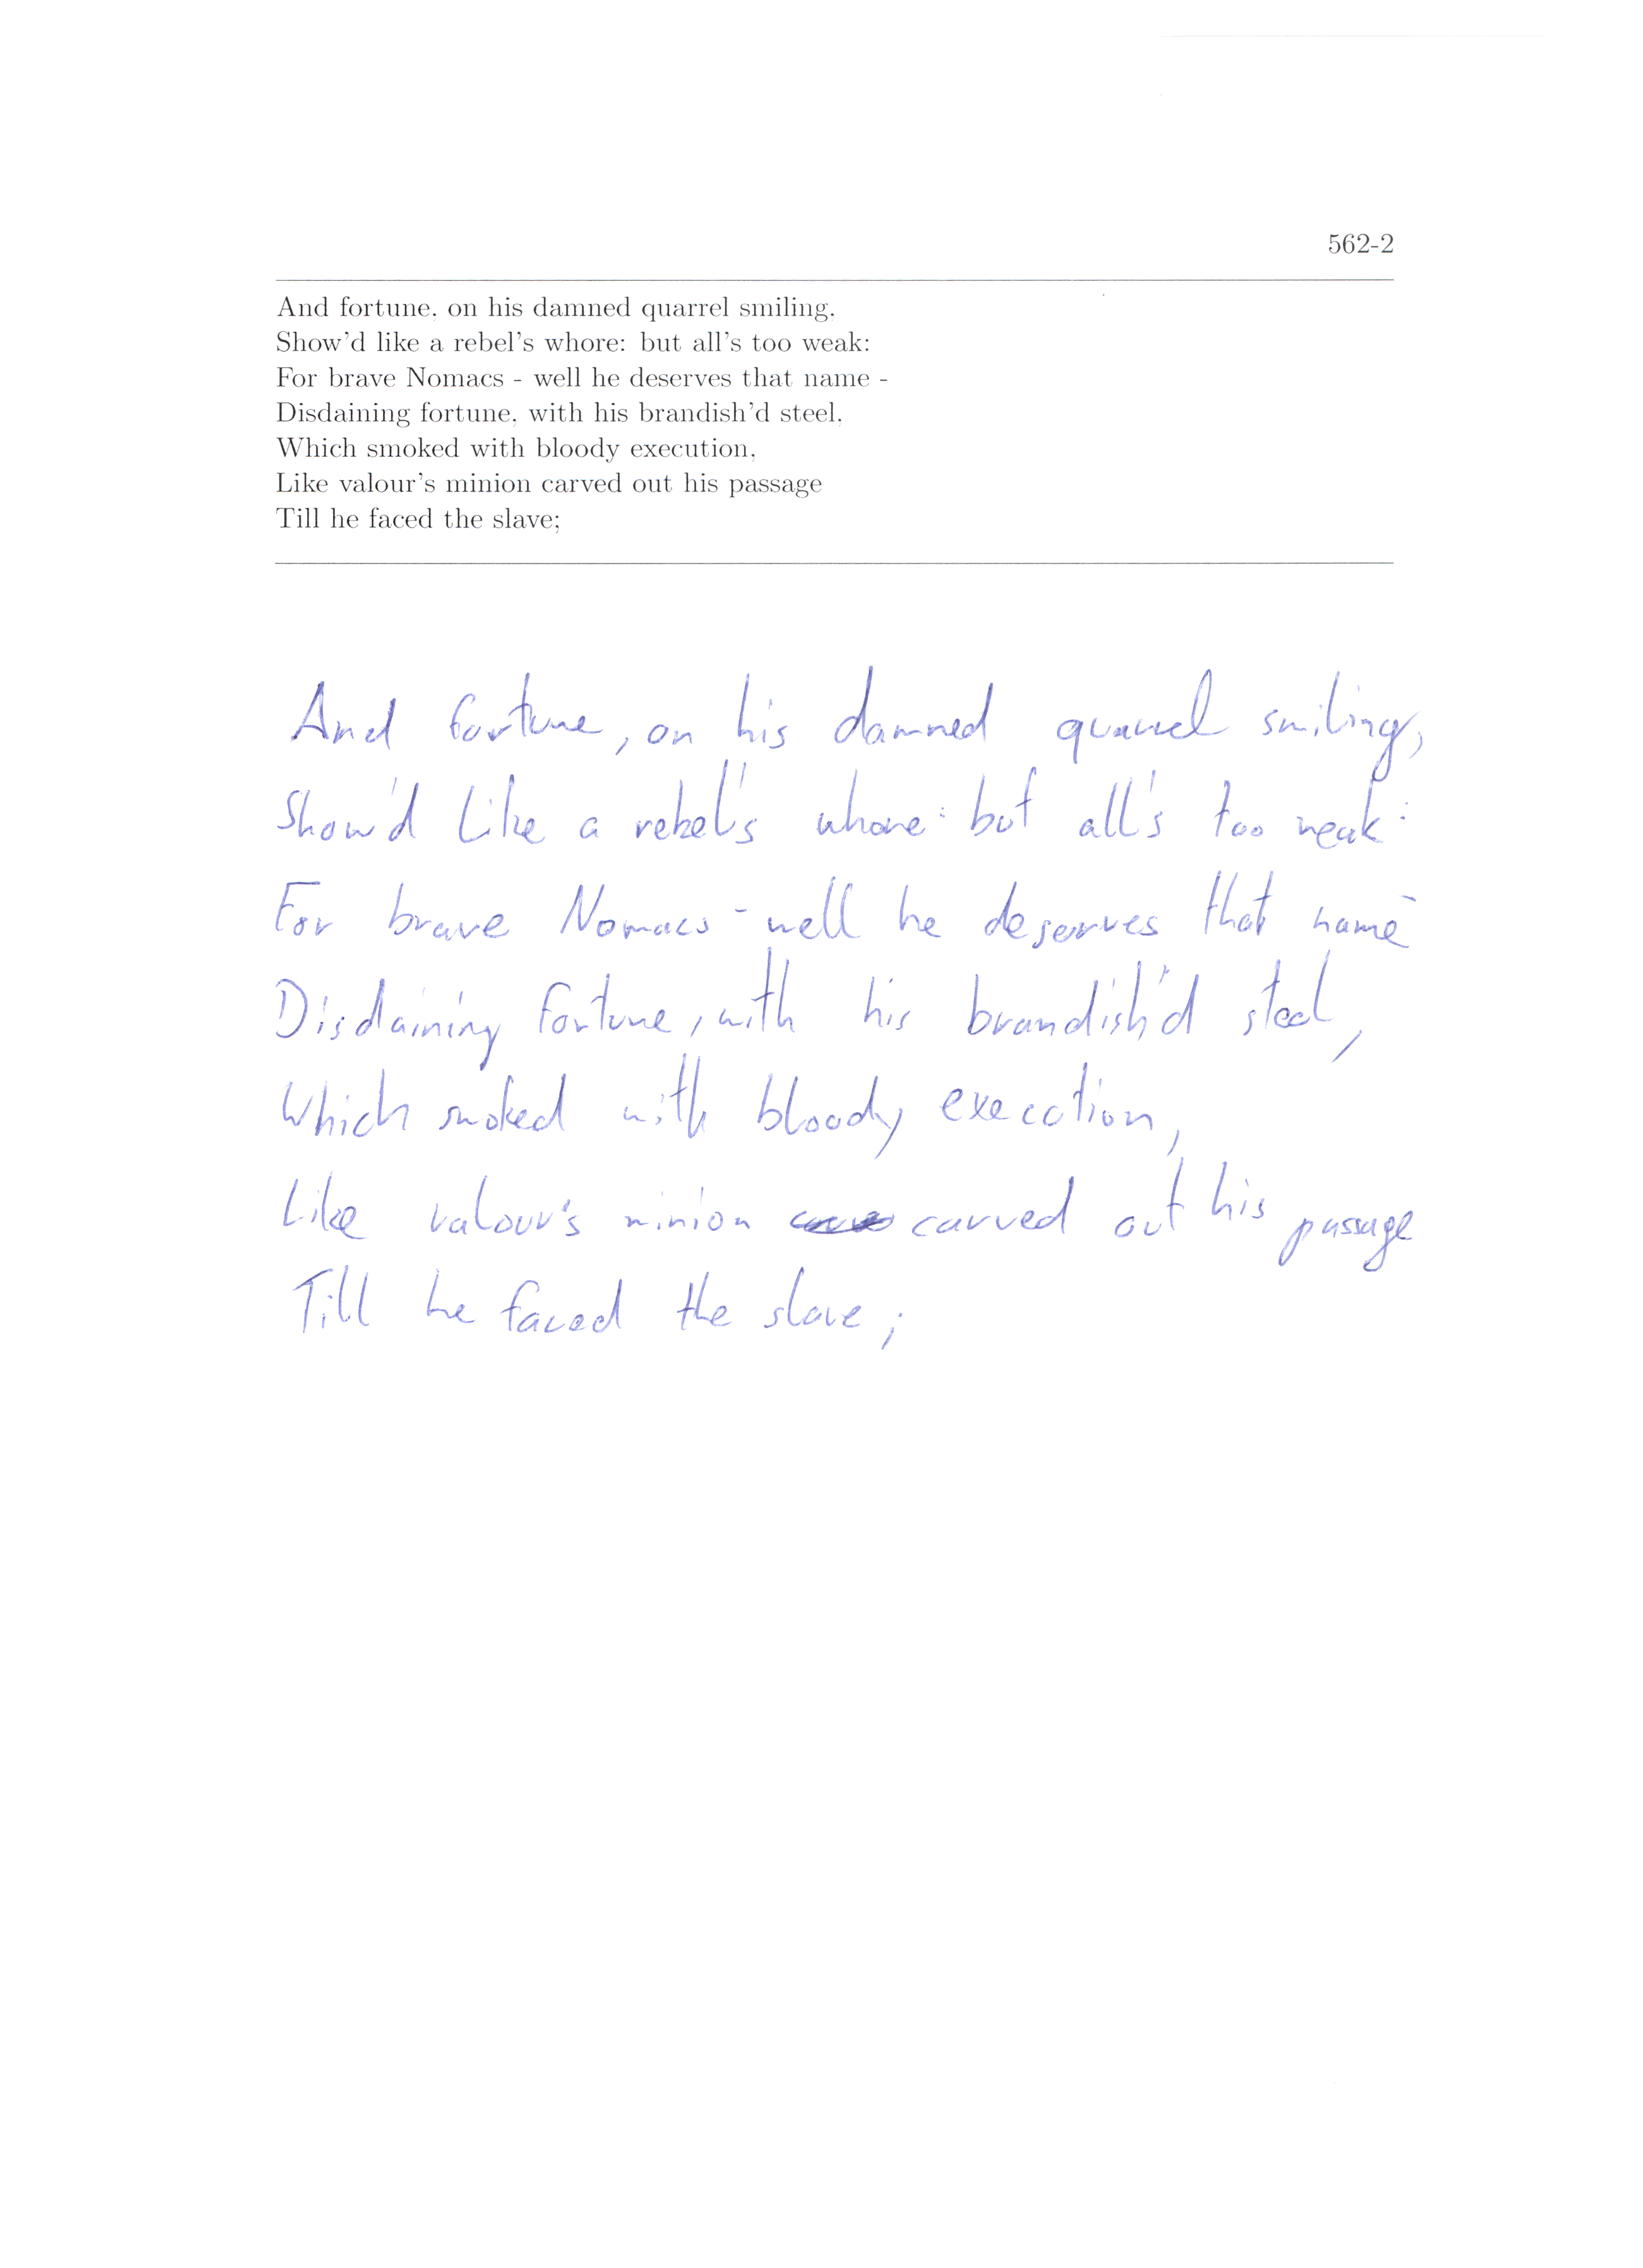 562-2
And fortune, on his damned quarrel smiling,
Show'd like a rebel's whore: but all's too weak:
For brave Nomacs - well he deserves that name -
Disdaining fortune, with his brandish'd steel,
Which smoked with bloody execution,
Like valour's minion carved out his passage
Till he faced the slave;
And fortune, on his damned quarrel smiling,
Show'd like a rebel's whore: but all's too weak:
For brave Nomacs - well he deserves that name -
Disdaining fortune, with his brandish'd steel,
Which smoked with bloody execution,
Like valour's minion carved out his passage
Till he faced the slave;